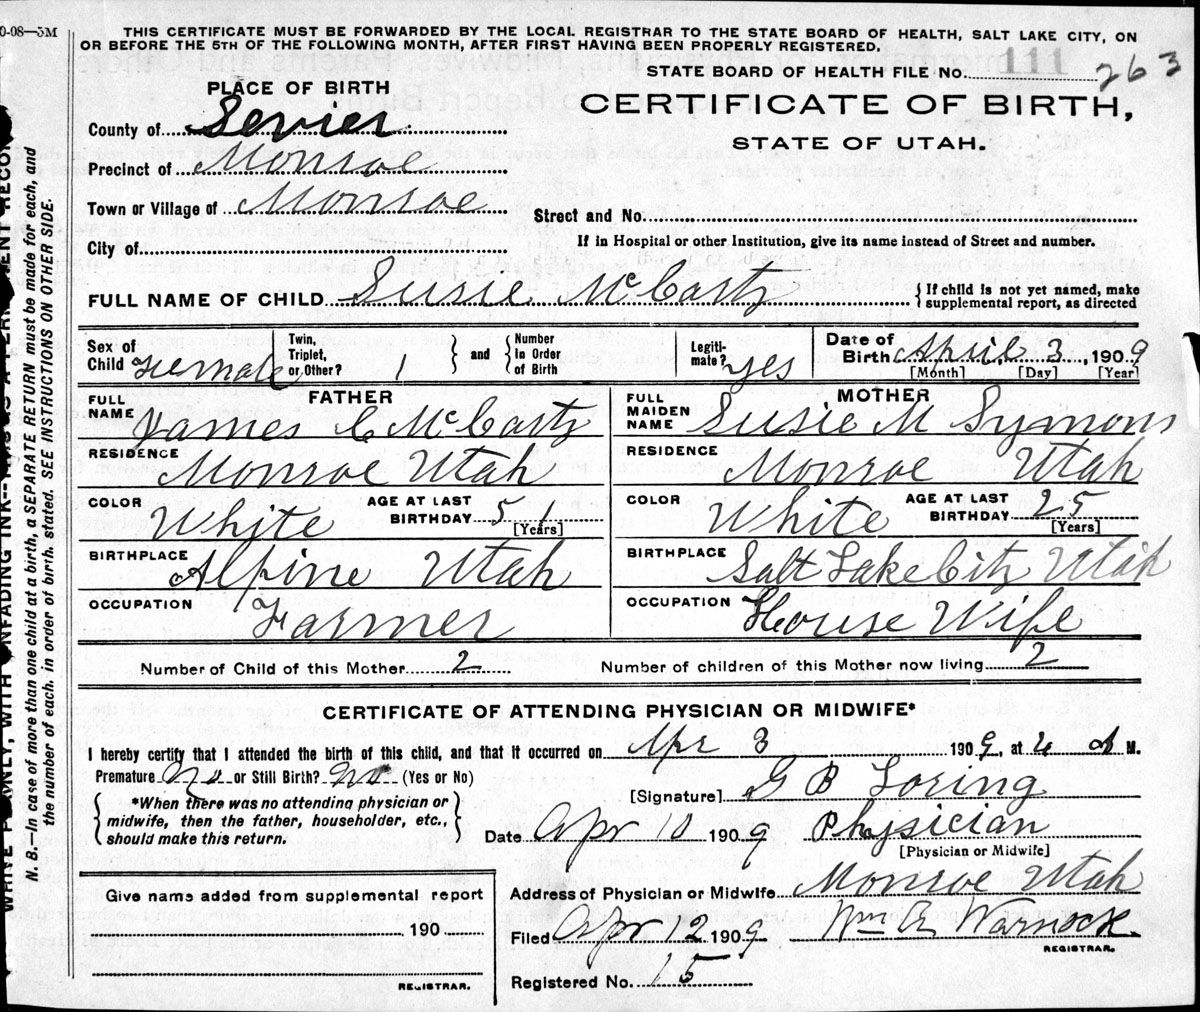 0-08—5M
THIS CERTIFICATE MUST BE FORWARDED BY THE LOCAL REGISTRAR TO THE STATE BOARD OF HEALTH, SALT LAKE CITY, ON
OR BEFORE THE 5TH OF THE FOLLOWING MONTH, AFTER FIRST HAVING BEEN PROPERLY REGISTERED.
STATE BOARD OF HEALTH FILE NO. 111 263
PLACE OF BIRTH
CERTIFICATE OF BIRTH,
STATE OF UTAH.
County of Sevier
Precinct of Monroe
Town or Village of Monroe
Street and No.
City of
If in Hospital or other Institution, give its name instead of Street and number.
FULL NAME OF CHILD Susie McCarty
{ If child is not yet named, make
supplemental report, as directed
Sex of
Child Female
Twin,
Triplet,
or Other? 1
} and {
Number
in Order
of Birth
Legiti-
mate? yes
Date of
Birth April 3, 1909
[Month] [Day] [Year]
FATHER
FULL
NAME James C McCarty
RESIDENCE Monroe Utah
COLOR White
AGE AT LAST
BIRTHDAY 51
[Years]
BIRTHPLACE Alpine Utah
OCCUPATION Farmer
MOTHER
FULL
MAIDEN
NAME Susie M Symons
RESIDENCE Monroe Utah
COLOR White
AGE AT LAST
BIRTHDAY 25
[Years]
BIRTHPLACE Salt Lake City Utah
OCCUPATION House Wife
Number of Child of this Mother 2
Number of children of this Mother now living 2
CERTIFICATE OF ATTENDING PHYSICIAN OR MIDWIFE*
I hereby certify that I attended the birth of this child, and that it occurred on Apr 3 1909, at M.
Premature No or Still Birth? no (Yes or No)
{ *When there was no attending physician or
midwife, then the father, householder, etc.,
should make this return. }
[Signature] G B Loring
Date Apr 10 1909 Physician
[Physician or Midwife]
Give name added from supplemental report
190
REGISTRAR.
Address of Physician or Midwife Monroe Utah
Filed Apr 12 1909 Wm Warnock.
REGISTRAR.
Registered No. 15
N. B.—In case of more than one child at a birth, a SEPARATE RETURN must be made for each, and
the number of each, in order of birth, stated. SEE INSTRUCTIONS ON OTHER SIDE.